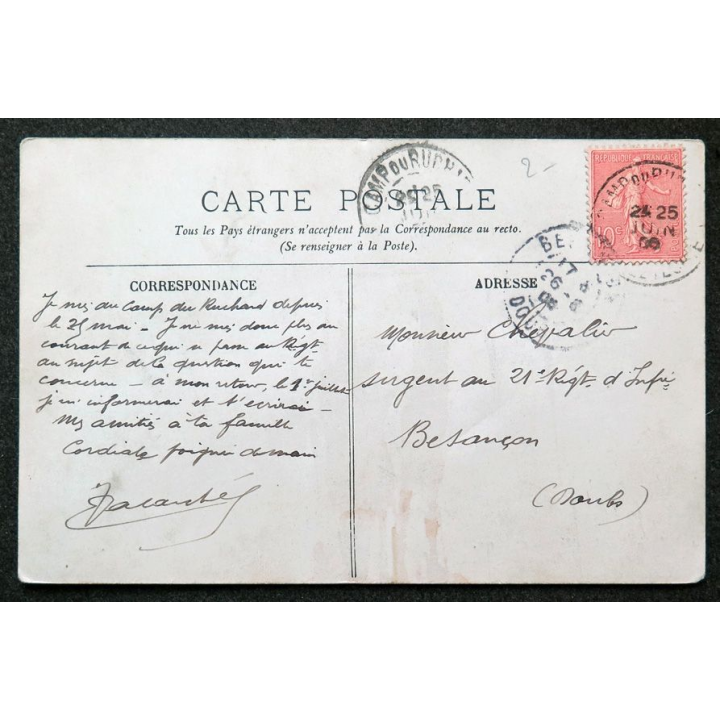 CAMP DU RUCHA
25
JUIN
2-
RÉPUBLIQUE FRANÇAISE
10c
CAMP DU RUCH
25
JUIN
06
CARTE POSTALE
Tous les Pays étrangers n'acceptent pas la Correspondance au recto.
(Se renseigner à la Poste).
BE
17
26
DOUBS
CORRESPONDANCE
Je suis au Camp du Ruchard depuis
le 25 mai - Je ne suis donc plus au
courant de ce qui se passe au Régt
au sujet de la question qui te
concerne - à mon retour, le 1er juillet
je m'informerai et t'écrirai -
Mes amitiés à ta famille
Cordiale poignée de main
ADRESSE
Monsieur Chevalier
sergent au 21e Régt d'Infie
Besançon
(Doubs)